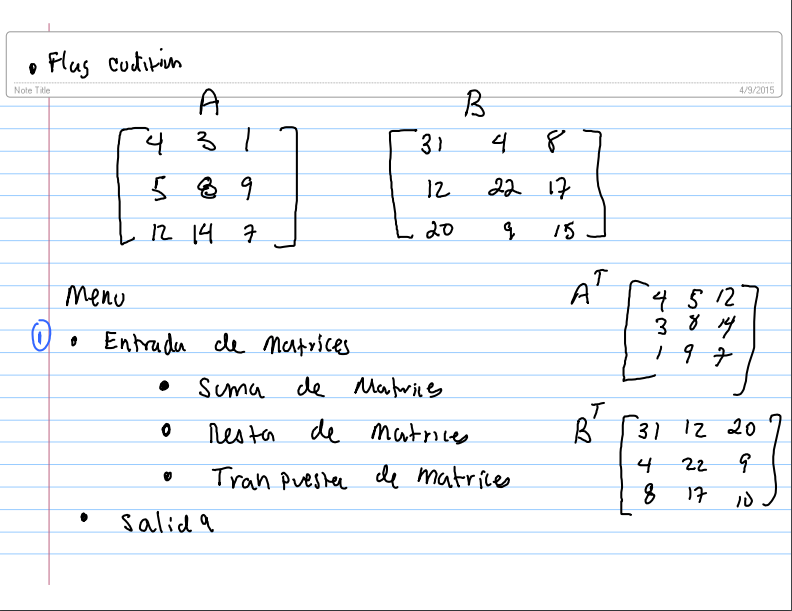 • Flag cudition
Note Title 4/9/2015
A B
4 3 1
5 8 9
12 14 7
31 4 8
12 22 17
20 9 15
Menu
① • Entrada de Matrices
• Suma de Matrices
• Resta de Matrices
• Tranpuesta de Matrices
• Salida
A^T
4 5 12
3 8 14
1 9 7
B^T
31 12 20
4 22 9
8 17 10